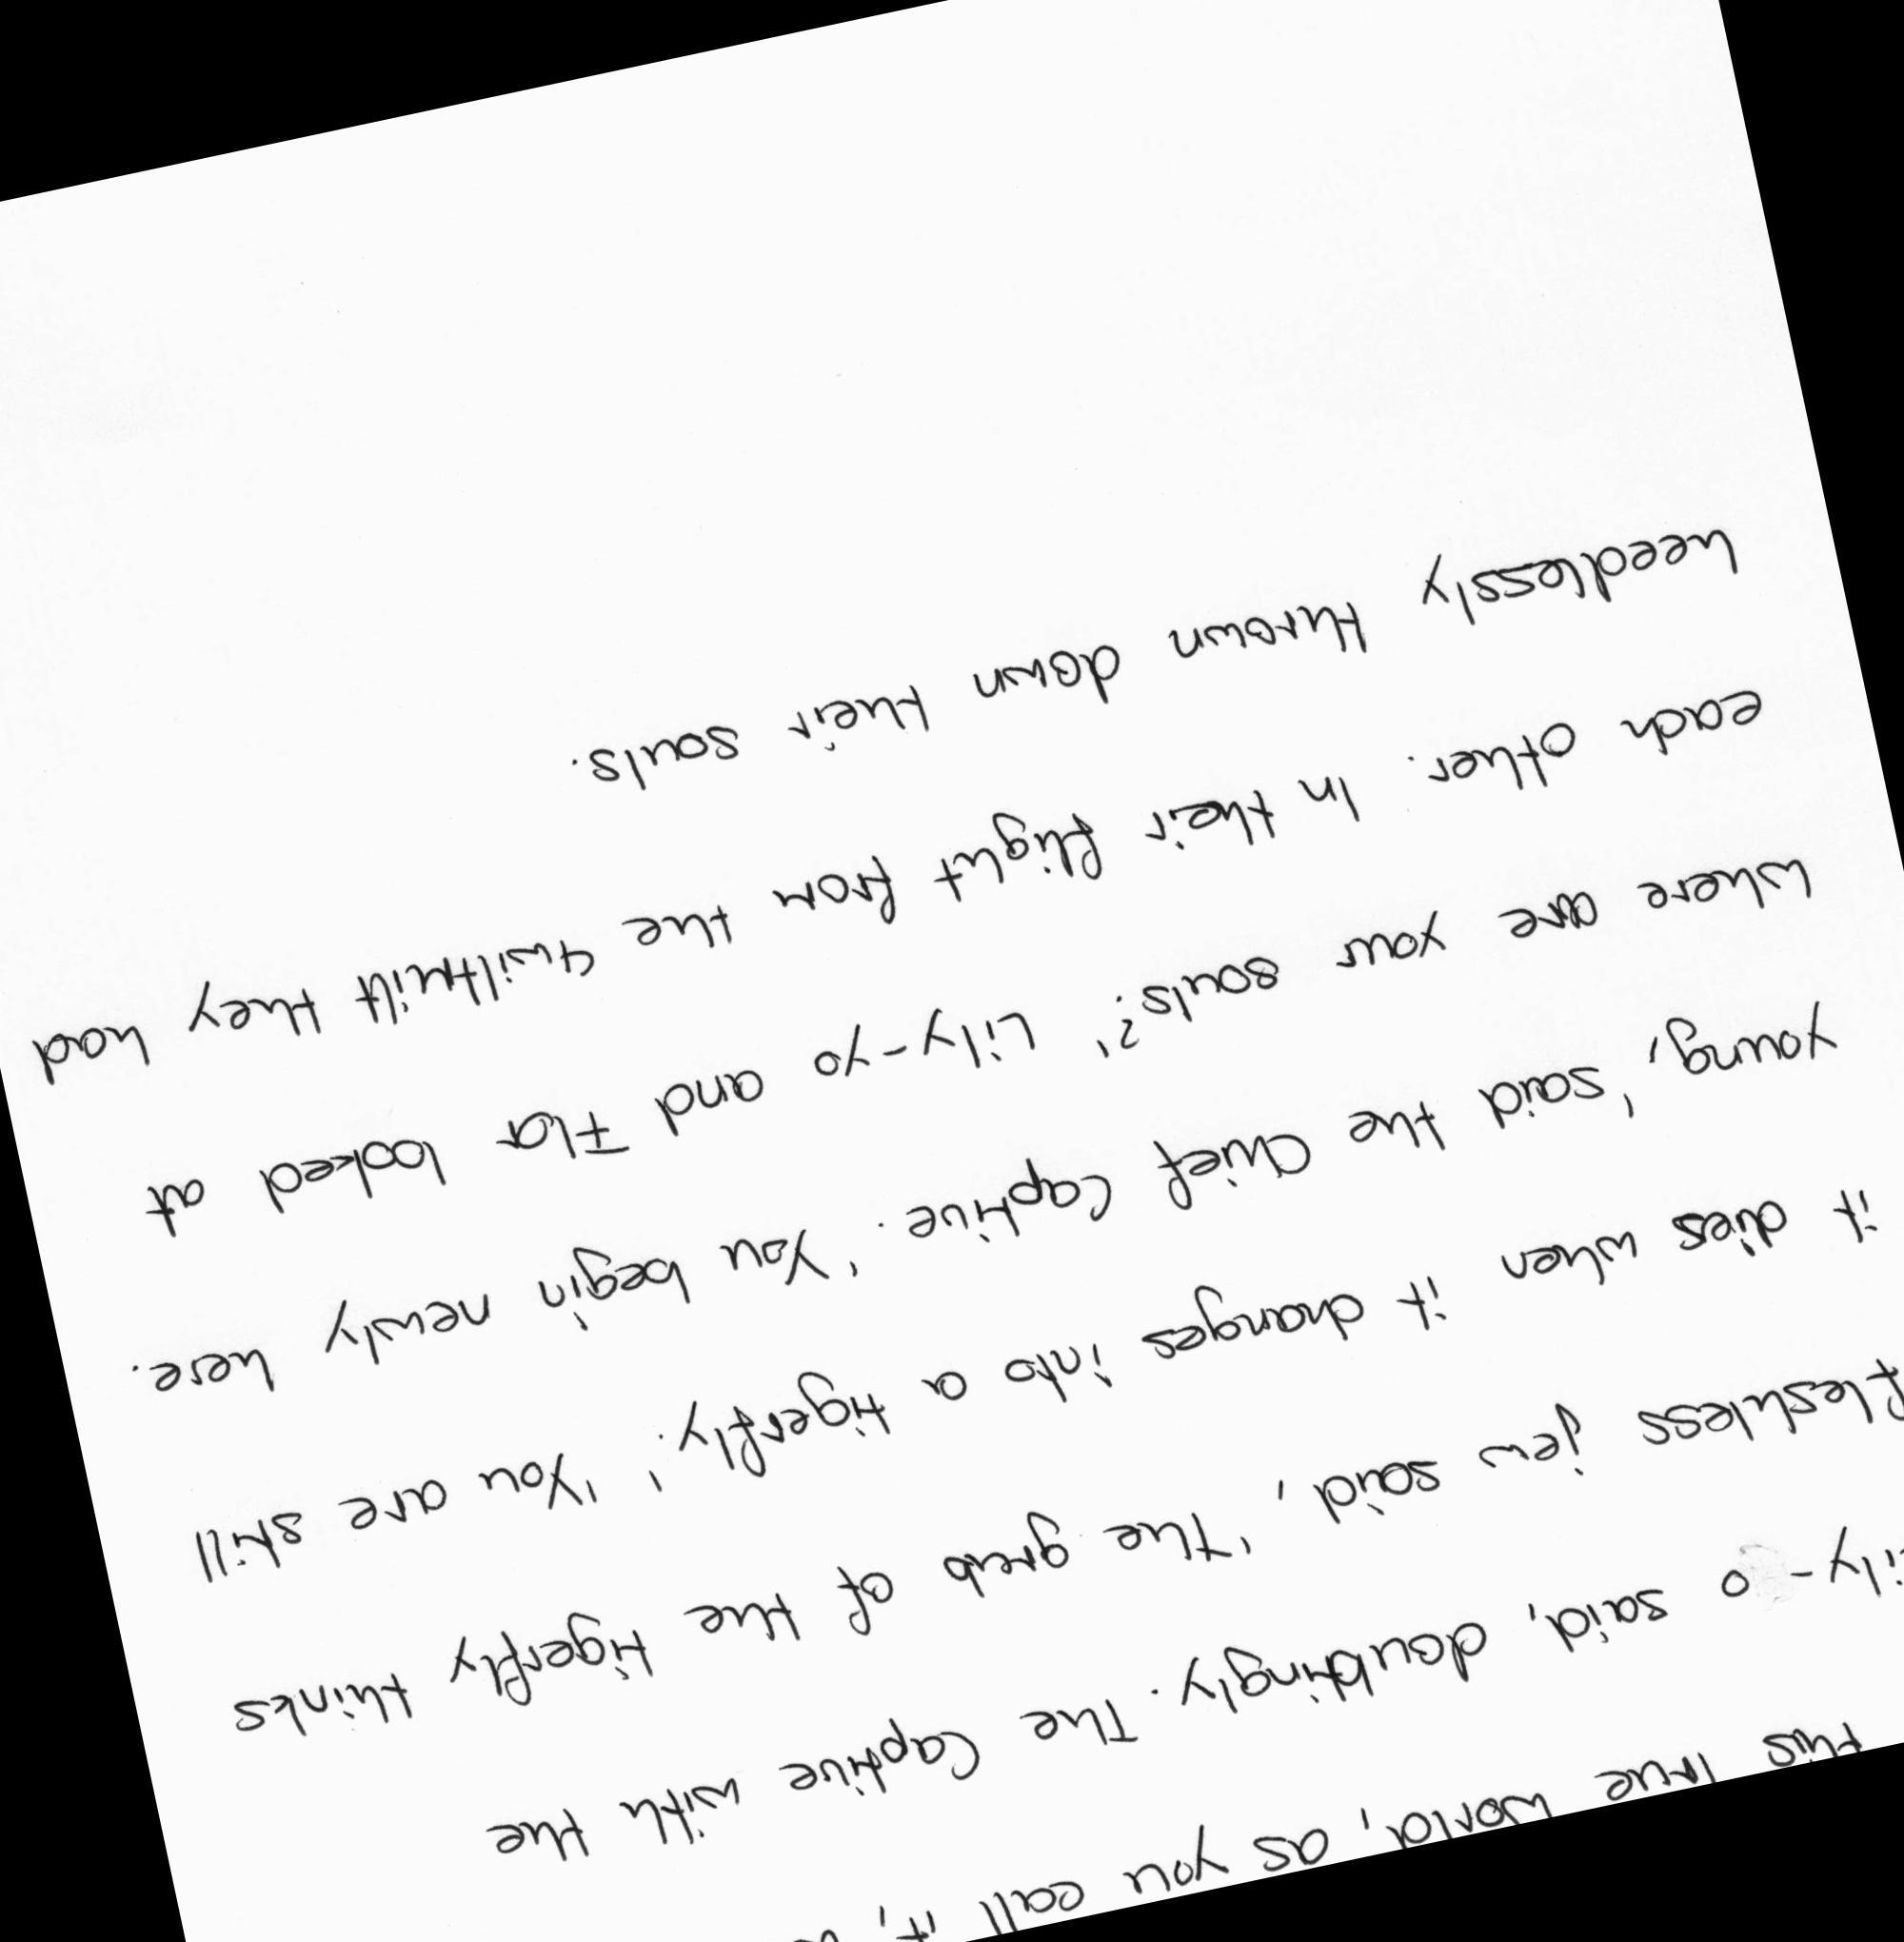 this true world, as you call it,'
said, doubtingly. The Captive with the
fleshless jew said, 'The grub of the tigerfly thinks
it dies when it changes into a tigerfly.', 'You are still
young,' 'said the Chief Captive. 'You begin newly here.
where are your souls?', Lily-yo and Flor looked at
each other. In their flight from the 4wiltmilt they had
heedlessly thrown down their souls.